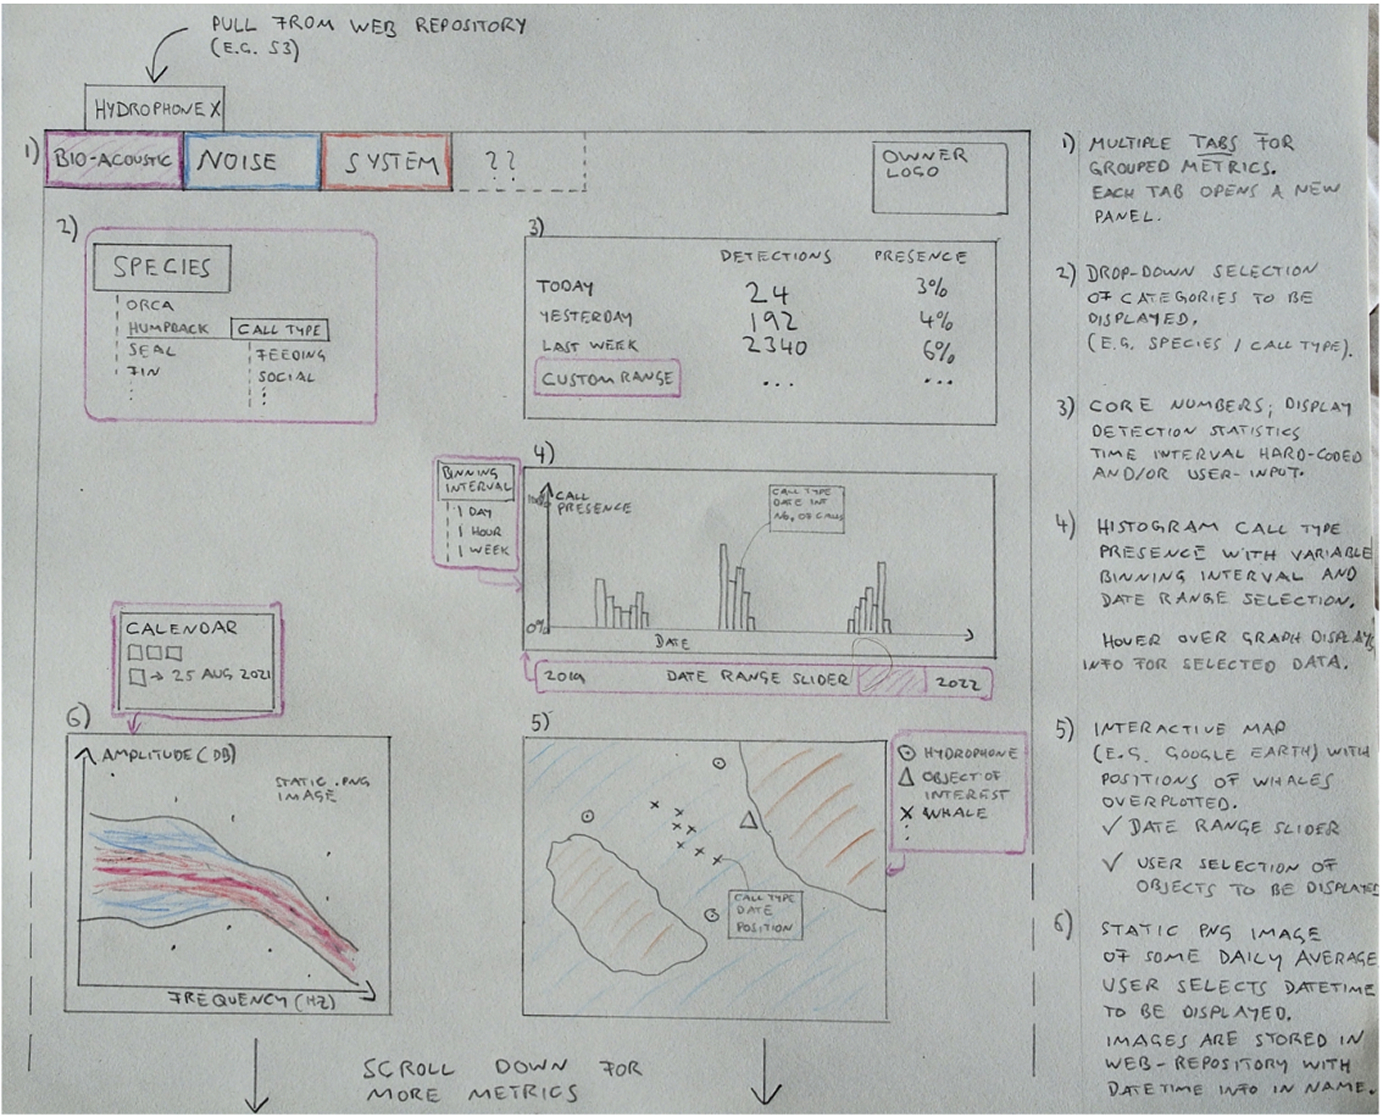 PULL FROM WEB REPOSITORY
(E.G. S3)
HYDROPHONE X
1)
BIO-ACOUSTIC
NOISE
SYSTEM
??
OWNER
LOGO
2)
SPECIES
ORCA
HUMPBACK
CALL TYPE
SEAL
FEEDING
FIN
SOCIAL
3)
DETECTIONS PRESENCE
TODAY 24 3%
YESTERDAY 192 4%
LAST WEEK 2340 6%
CUSTOM RANGE ... ...
4)
BINNING
INTERVAL
1 DAY
1 HOUR
1 WEEK
CALL
PRESENCE
CALL TYPE
DATE INT
NO. OF CALLS
0%
DATE
2019 DATE RANGE SLIDER 2022
CALENDAR
→ 25 AUG 2021
6)
AMPLITUDE (DB)
STATIC .PNG
IMAGE
FREQUENCY (HZ)
5)
HYDROPHONE
OBJECT OF
INTEREST
WHALE
CALL TYPE
DATE
POSITION
SCROLL DOWN FOR
MORE METRICS
1) MULTIPLE TABS FOR
GROUPED METRICS.
EACH TAB OPENS A NEW
PANEL.
2) DROP-DOWN SELECTION
OF CATEGORIES TO BE
DISPLAYED.
(E.G. SPECIES / CALL TYPE).
3) CORE NUMBERS; DISPLAY
DETECTION STATISTICS
TIME INTERVAL HARD-CODED
AND/OR USER-INPUT.
4) HISTOGRAM CALL TYPE
PRESENCE WITH VARIABLE
BINNING INTERVAL AND
DATE RANGE SELECTION.
HOVER OVER GRAPH DISPLAYS
INFO FOR SELECTED DATA.
5) INTERACTIVE MAP
(E.G. GOOGLE EARTH) WITH
POSITIONS OF WHALES
OVERPLOTTED.
✓ DATE RANGE SLIDER
✓ USER SELECTION OF
OBJECTS TO BE DISPLAYED
6) STATIC PNG IMAGE
OF SOME DAILY AVERAGE
USER SELECTS DATETIME
TO BE DISPLAYED.
IMAGES ARE STORED IN
WEB-REPOSITORY WITH
DATETIME INFO IN NAME.